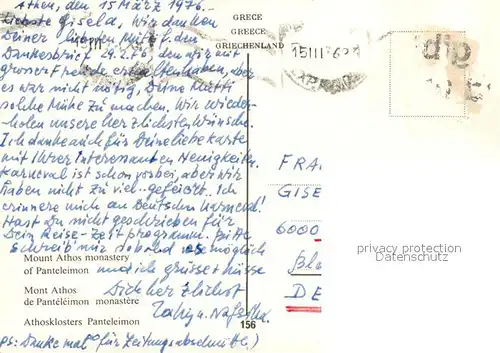 Athen, den 15 März 1976.-
Liebste Gisela, Wir danken
Deiner lieben Mutti, den
Dankesbrief 29.2.76, den wir mit
grosser Freude erhalten haben, aber
es war nicht nötig, Deine Mutti
solche Mühe zu machen. Wir wieder-
holen unsere herzlichsten Wünsche.
Ich danke auch für Deine liebe Karte
mit Ihren interessanten Neuigkeiten.
Karneval ist schon vorbei, aber wir
haben nicht zu viel gefeiert. Ich
erinnere mich an Deutschen Karneval!
Hast Du mich geschrieben für
Dein Reise-Zeit programm. Bitte
schreib' mir sobald es möglich
und ich grüsse + küsse
Dich herzlichst
PS: Danke mal für Zeitungsabschnitte!)
GRECE
GREECE
GRIECHENLAND
15III 76
dip
FRA
GISE
6000
DE
privacy protection
Datenschutz
Mount Athos monastery
of Panteleimon
Mont Athos
de Pantéléimon monastère
Athosklosters Panteleimon
156